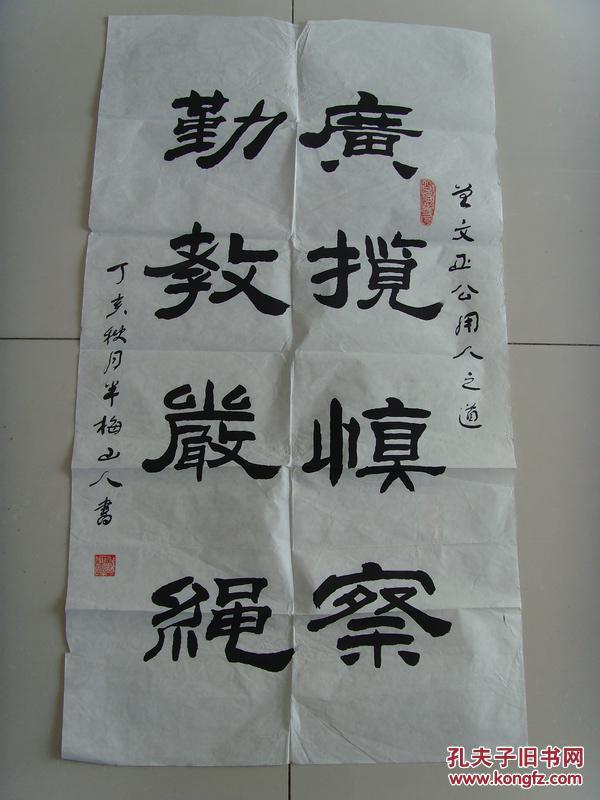 曾文正公用人之道
廣揽慎察
勤教嚴縄
丁亥秋月半梅山人書
孔夫子旧书网
www.kongfz.com